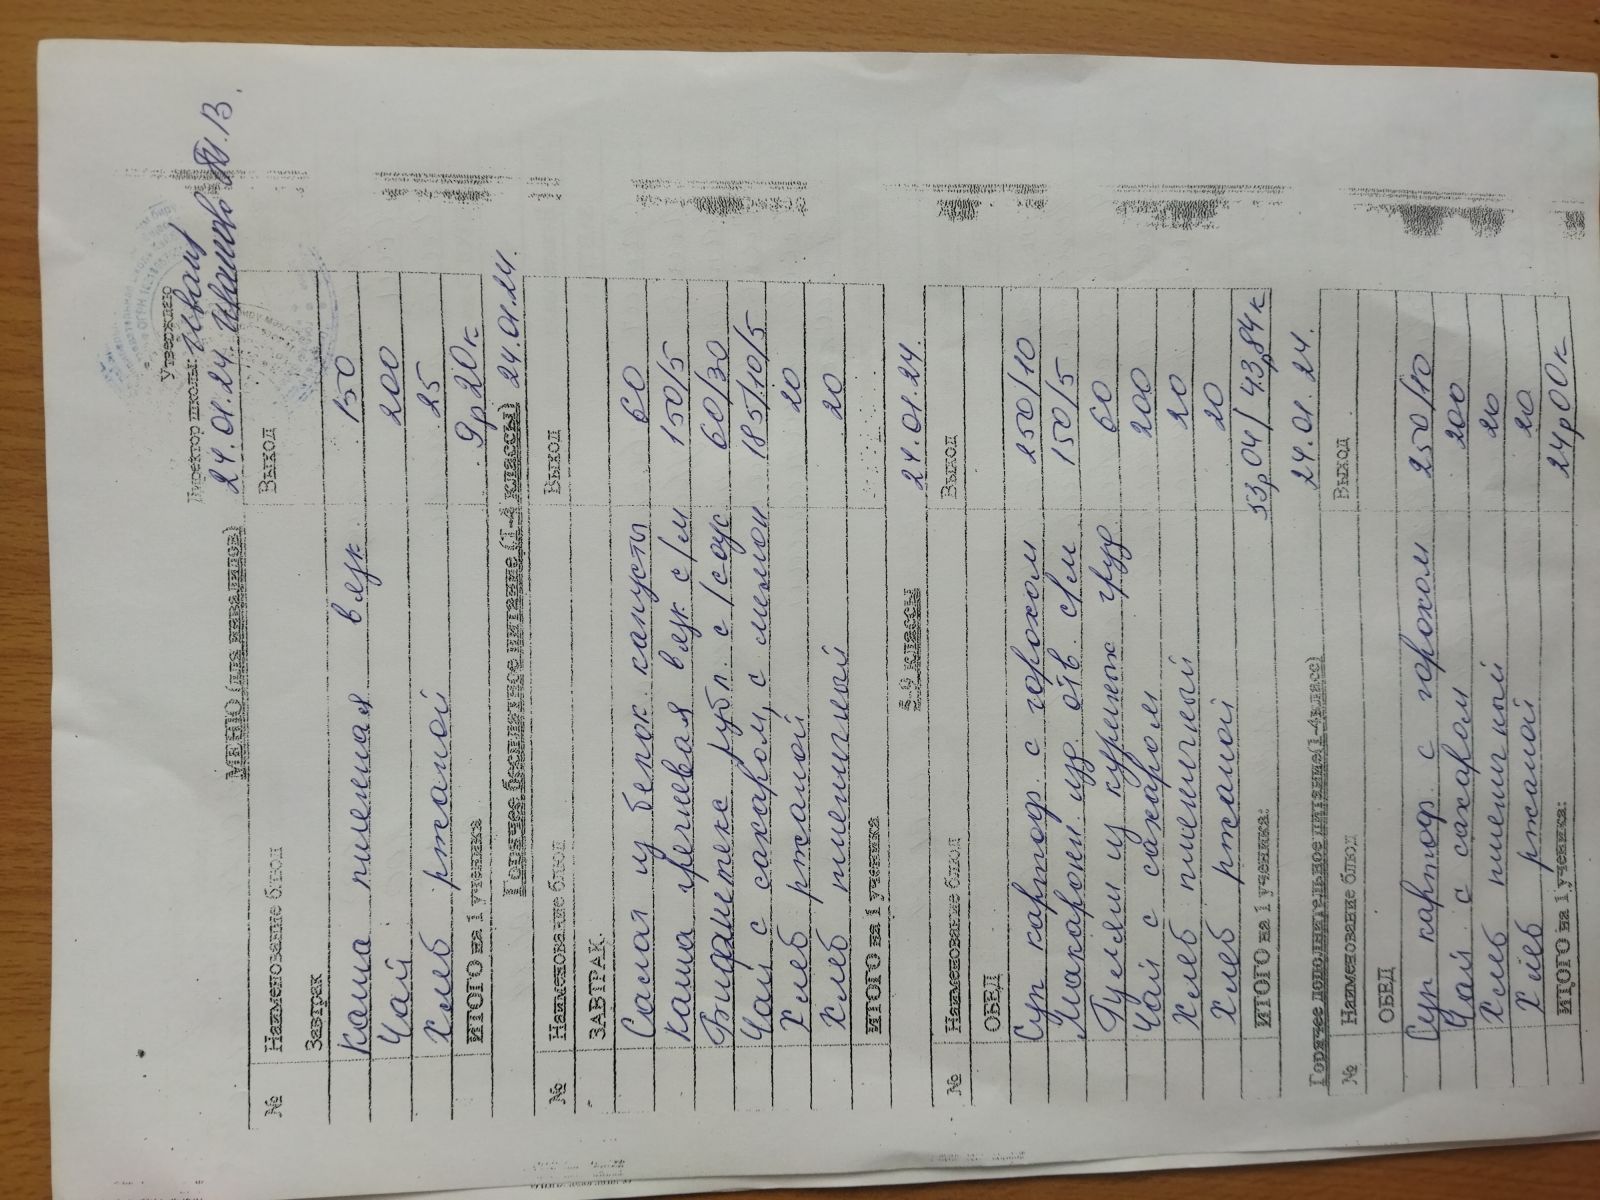 Утверждаю
Директор школы:
24.01.24.
МЕНЮ (для инвалидов)
№ Наименование блюд Выход
Завтрак
Каша пшенная вязк. 150
Чай 200
Хлеб ржаной 25
ИТОГО на 1 ученика 9р 20к
Горячее бесплатное питание (1-4 классы) 24.01.24.
№ Наименование блюд Выход
ЗАВТРАК.
Салат из белок капусты 60
Каша гречневая вязк с/м 150/5
Бифштекс рубл. с/соус 60/30
Чай с сахаром, с лимон 185/10/5
Хлеб ржаной 20
Хлеб пшеничный 20
ИТОГО на 1 ученика
5-9 классы 24.01.24.
№ Наименование блюд Выход
ОБЕД
Суп картоф. с горохом 250/10
Макарон. изд. отв. с/м 150/5
Гуляш из куриных груд 60
Чай с сахаром 200
Хлеб пшеничный 20
Хлеб ржаной 20
ИТОГО на 1 ученика: 53р04/43,84к
24.01.24.
Горячее дополнительное питание(1-4класс)
№ Наименование блюд Выход
ОБЕД
Суп картоф. с горохом 250/10
Чай с сахаром 200
Хлеб пшеничный 20
Хлеб ржаной 20
ИТОГО на 1 ученика: 24р00к